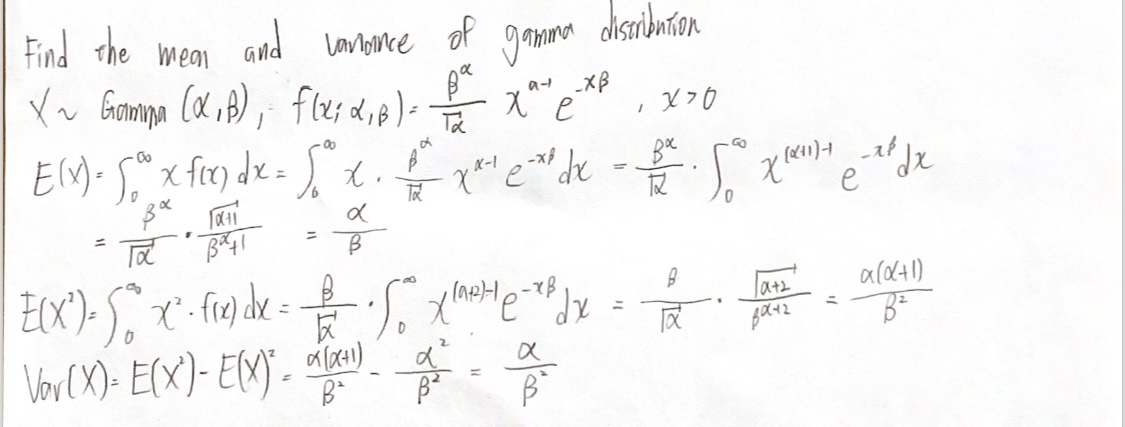 Find the mean and variance of gamma distribution
X ~ Gamma (α, β), f(x; α, β) = β^α / Γα x^(α-1) e^(-xβ), x > 0
E(X) = ∫₀^∞ x f(x) dx = ∫₀^∞ x · β^α / Γα x^(α-1) e^(-xβ) dx = β^α / Γα · ∫₀^∞ x^((α+1)-1) e^(-xβ) dx
= β^α / Γα · Γα+1 / β^α+1 = α / β
E(X²) = ∫₀^∞ x² · f(x) dx = β / Γα · ∫₀^∞ x^((α+2)-1) e^(-xβ) dx = β / Γα · Γα+2 / β^(α+2) = α(α+1) / β²
Var(X) = E(X²) - E(X)² = α(α+1) / β² - α² / β² = α / β²